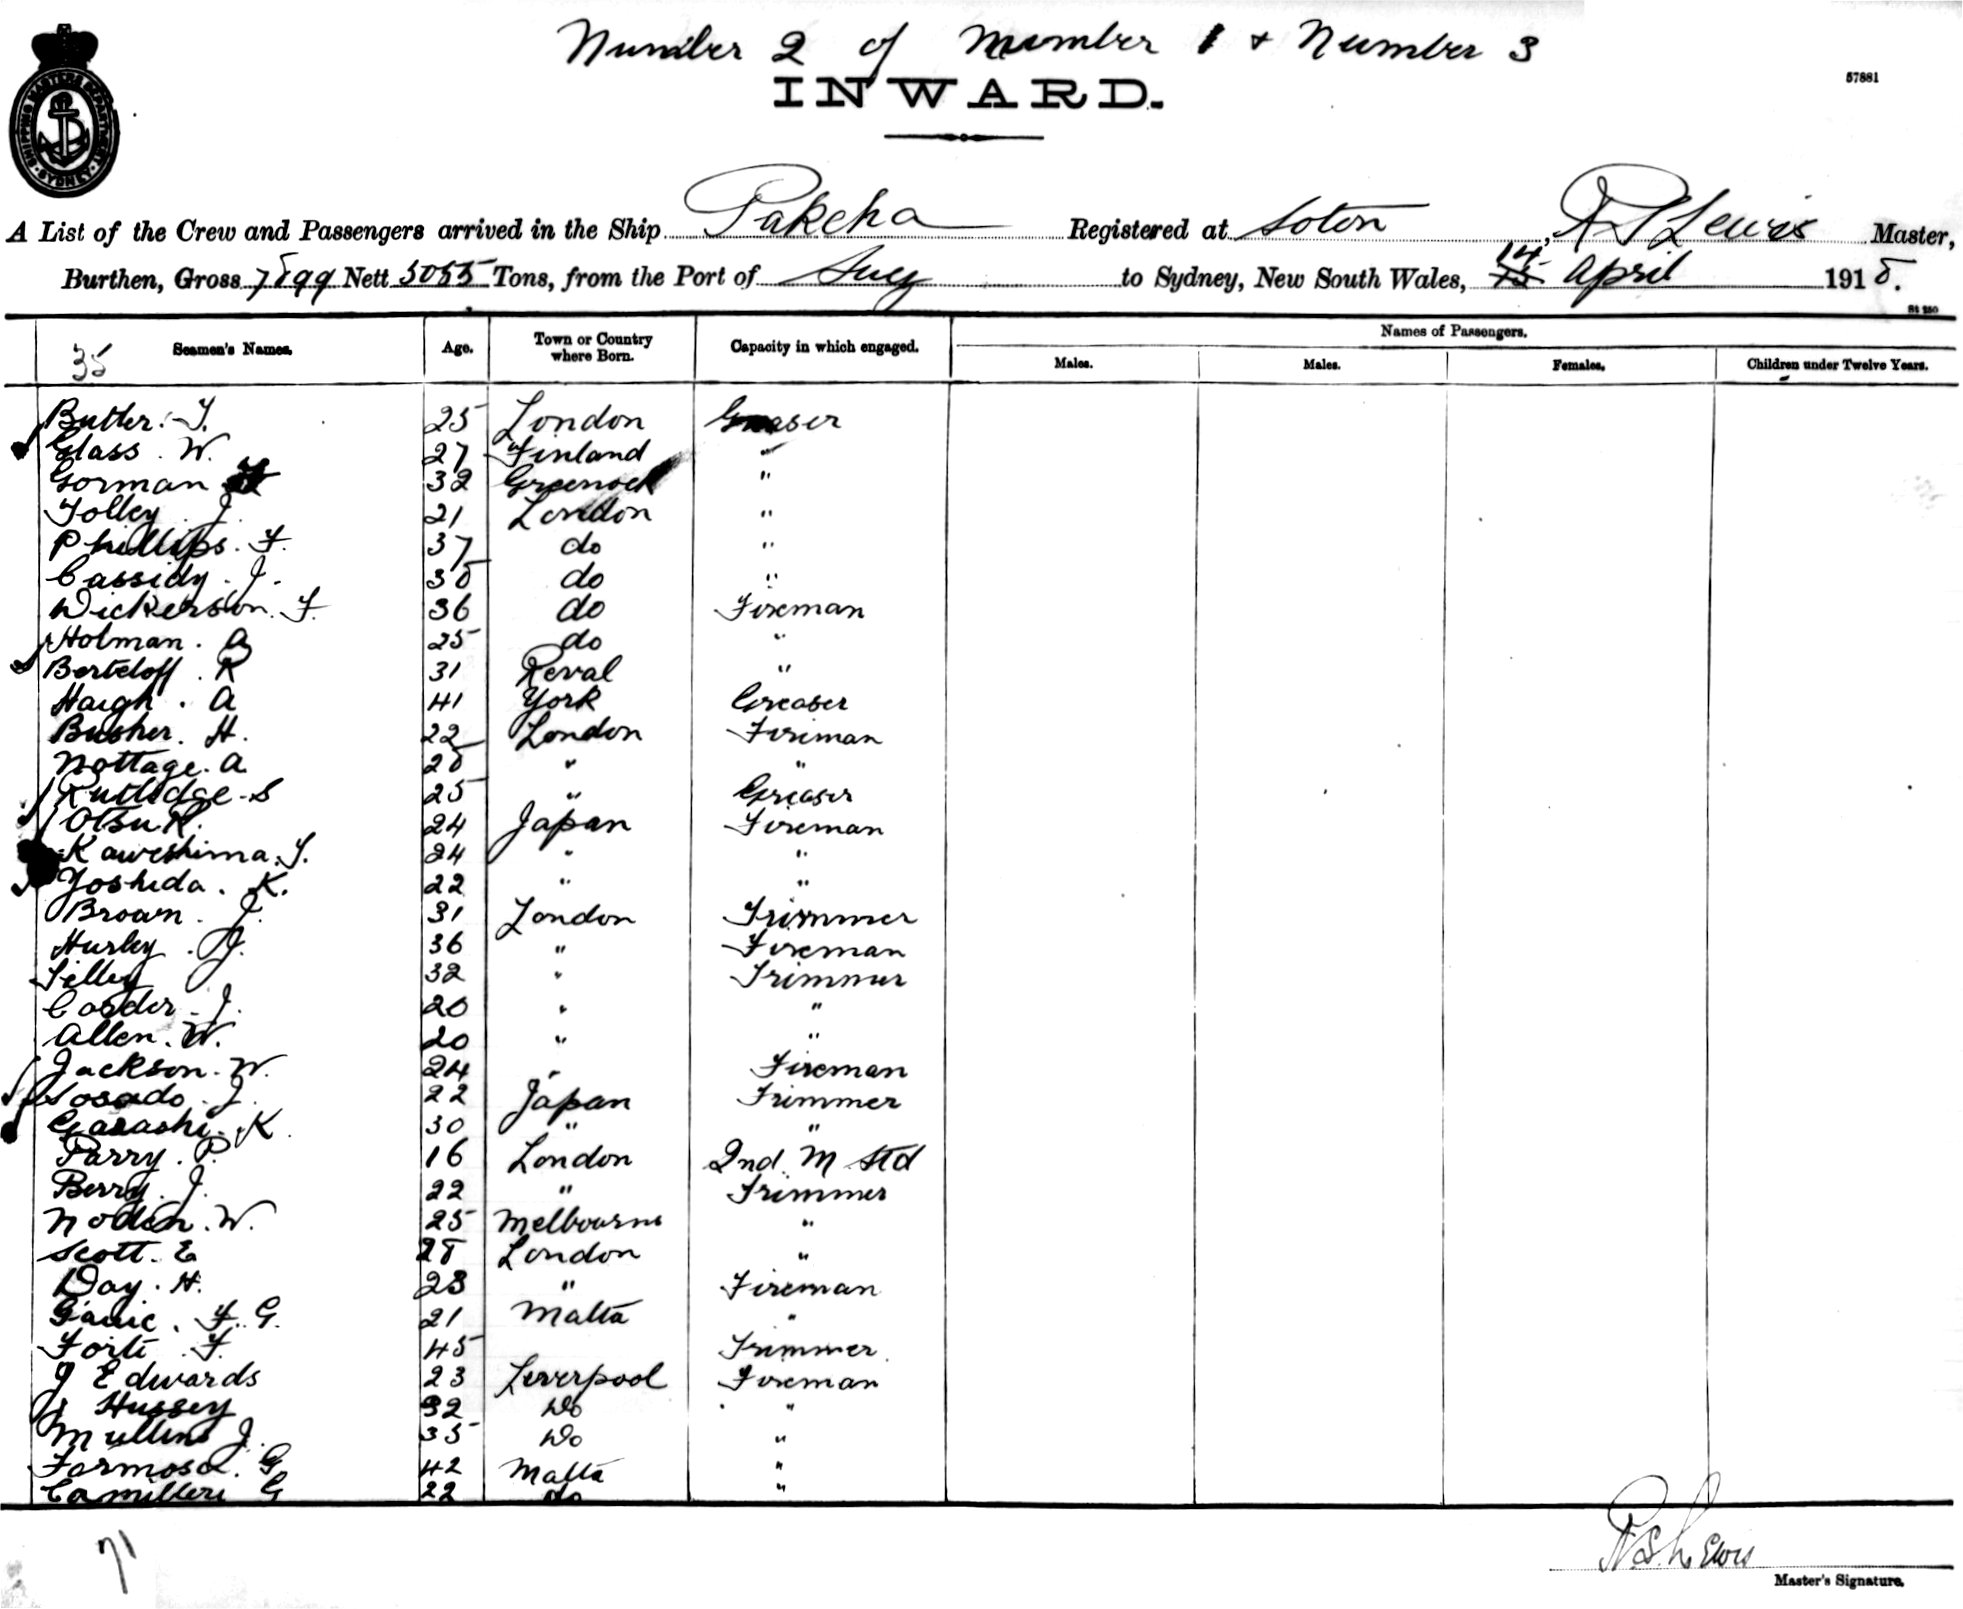 Number 2 of Number 1 & Number 3
INWARD.
57881
SHIPPING MASTERS DEPARTMENT SYDNEY
A List of the Crew and Passengers arrived in the Ship Pakeha Registered at Soton, Lewis Master,
Burthen, Gross 7899 Nett 5055 Tons, from the Port of Suez to Sydney, New South Wales, 14 April 1918.
St 250
35 Seamen's Names. Age. Town or Country where Born. Capacity in which engaged. Names of Passengers.
Males. Males. Females. Children under Twelve Years.
Butler. T. 25 London Greaser
Glass. W. 27 Finland "
Gorman 32 Greenock "
Tolley. J. 21 London "
Phillips. F. 37 do "
Cassidy. J. 38 do "
Wickerson. F. 36 do Fireman
Holman. A 25 do "
Berteloff. R 31 Reval "
Haigh. A 41 York Greaser
Busher. H. 22 London Fireman
Nottage. A 28 " "
Rutlidge. S 25 " Greaser
Otsu K. 24 Japan Fireman
Kaweshima. T. 24 " "
Yoshida. K. 22 " "
Brown. J. 31 London Trimmer
Hurley. J. 36 " Fireman
Tilley 32 " Trimmer
Corder. J. 20 " "
Allen. W. 20 " "
Jackson. W. 24 " Fireman
Sosado. J. 22 Japan Trimmer
Garashi. K. 30 " "
Parry. P. 16 London 2nd M Std
Berry. J. 22 " Trimmer
Noden. W. 25 Melbourne "
Scott. E 28 London "
Day. H. 23 " Fireman
F. G. 21 Malta "
Forte. F. 45 Trimmer
J Edwards 23 Liverpool Fireman
J Hussey 32 Do "
Mullins J. 35 Do "
Formosa. G 42 Malta "
Camilleri G 22 do "
71
R.S. Lewis
Master's Signature.